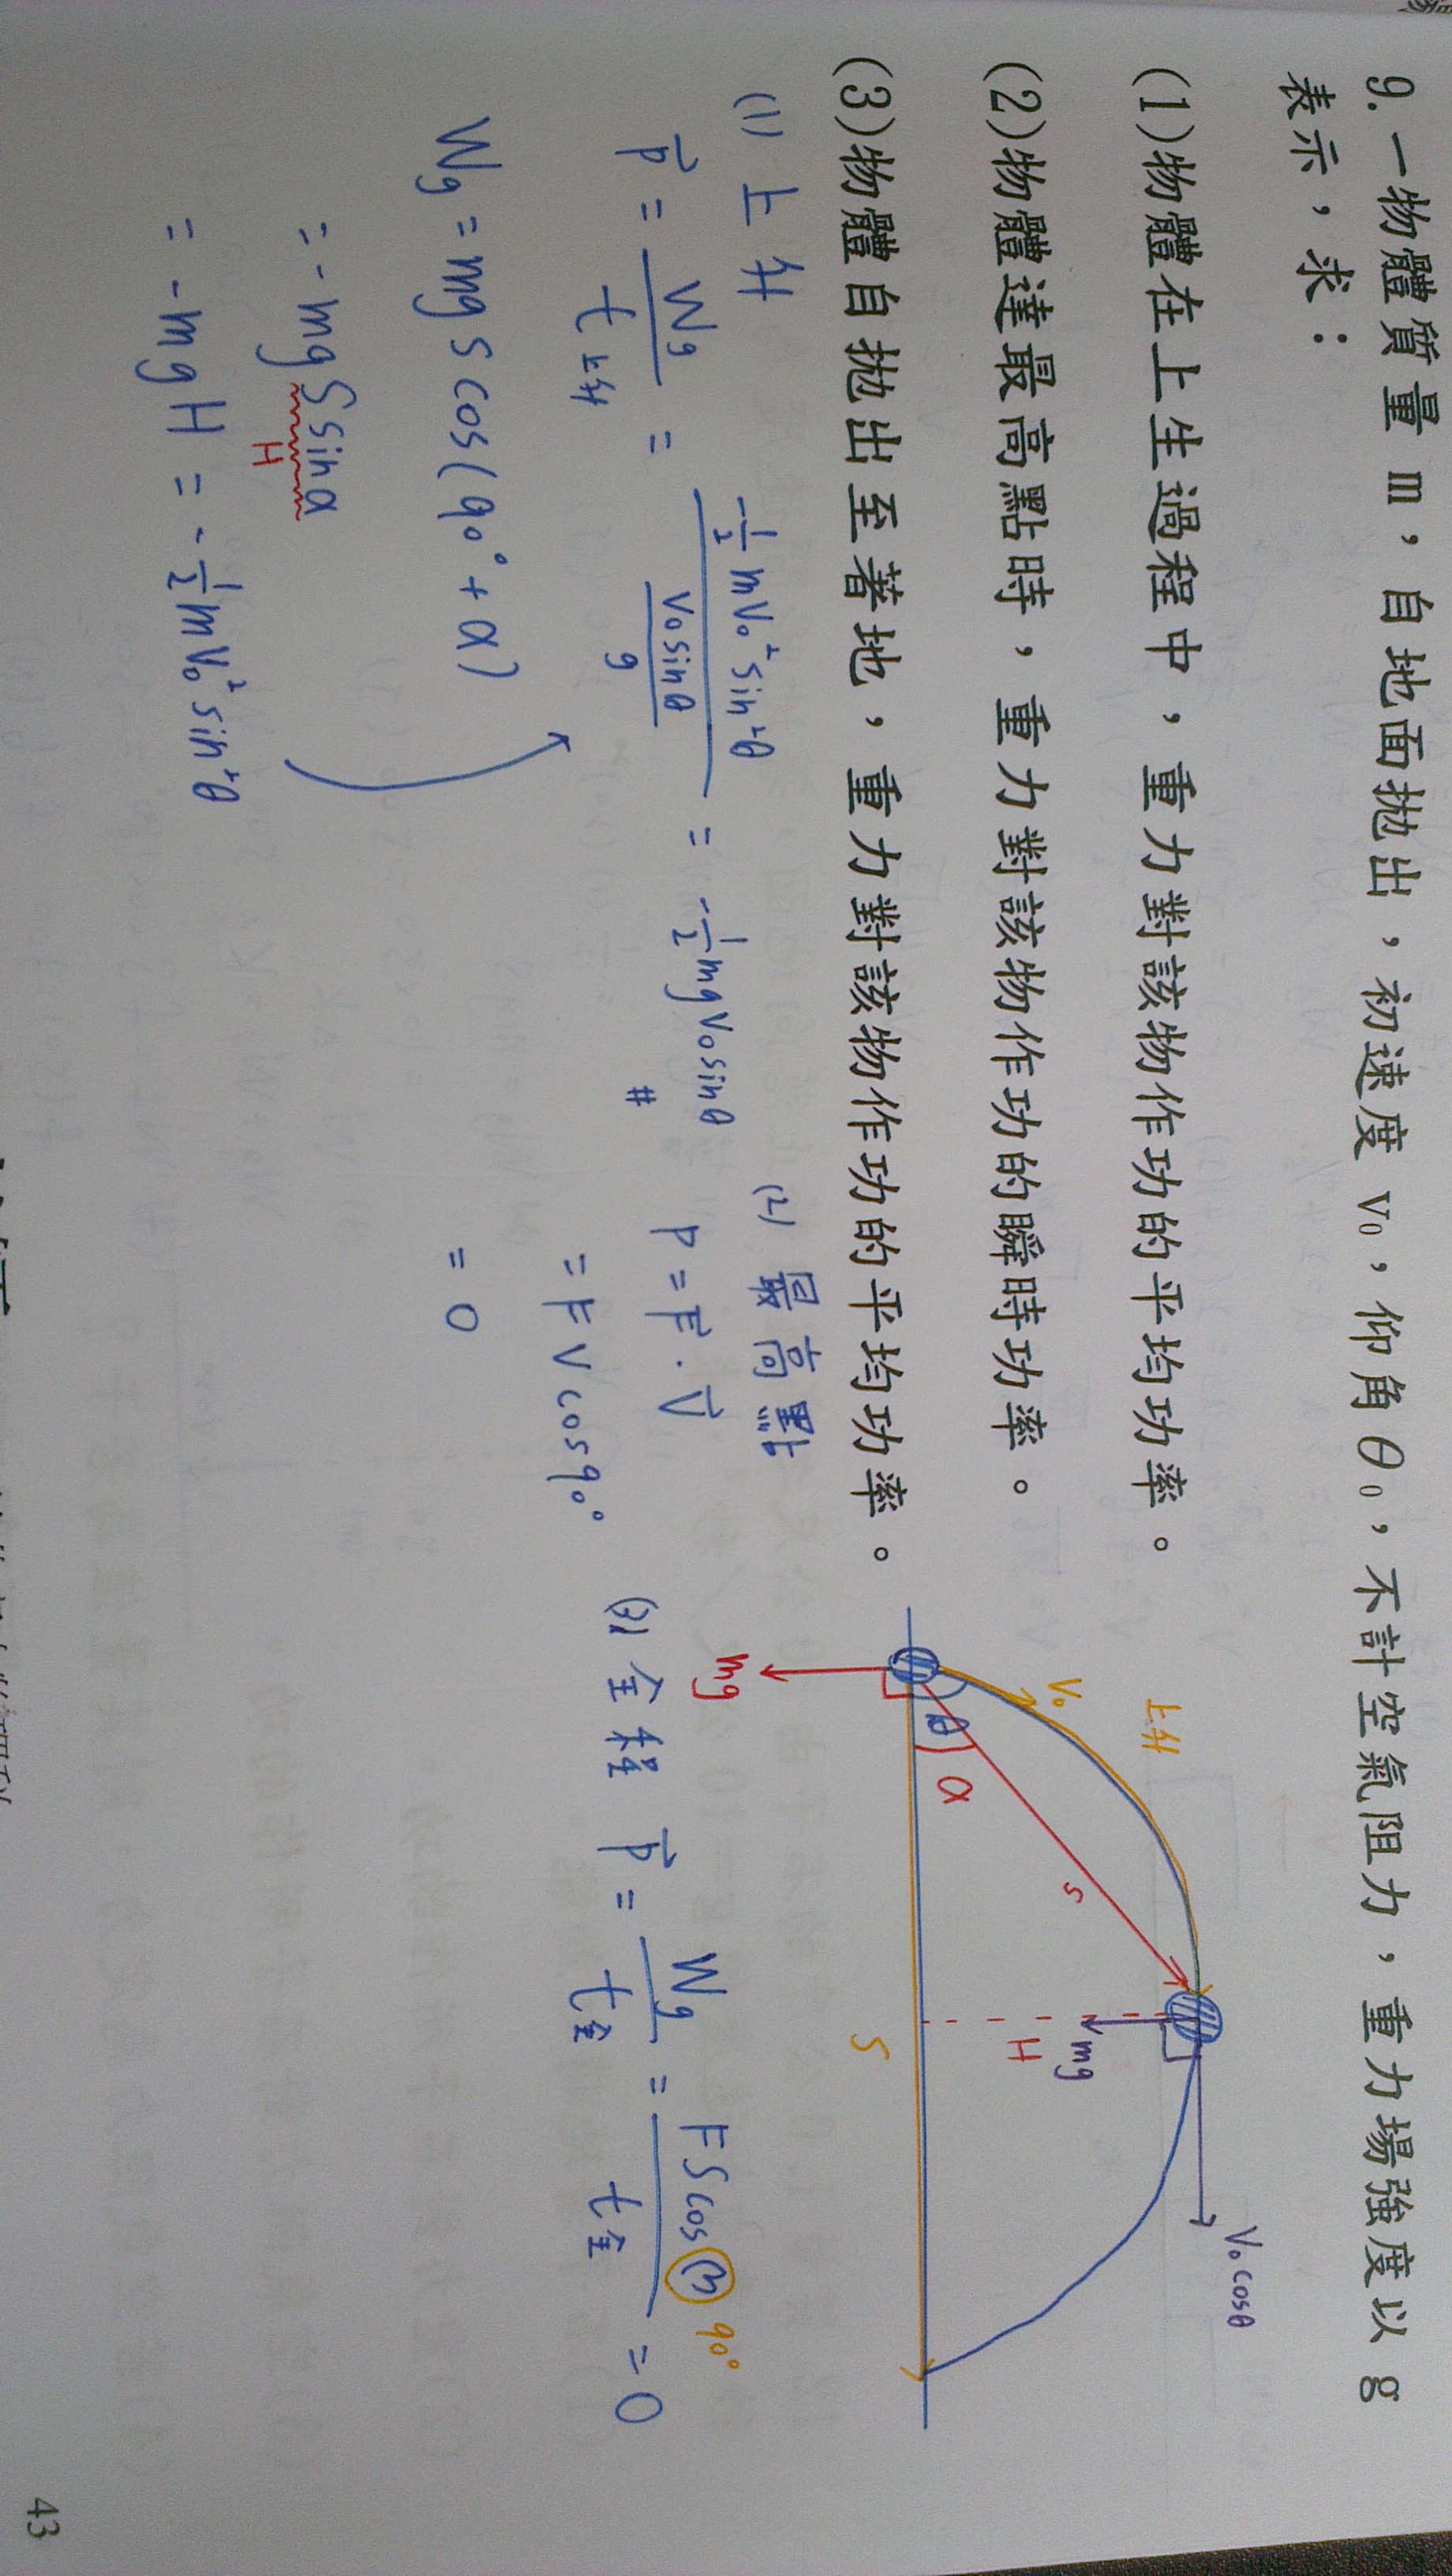 9. 一物體質量 m，自地面拋出，初速度 v₀，仰角 θ₀，不計空氣阻力，重力場強度以 g
表示，求：
(1)物體在上生過程中，重力對該物作功的平均功率。
(2)物體達最高點時，重力對該物作功的瞬時功率。
(3)物體自拋出至著地，重力對該物作功的平均功率。
上升
V₀
V₀cosθ
mg
H
S
θ
α
mg
S
(1) 上升
P̄ = Wg / t上升 = (-½mV₀²sin²θ) / (V₀sinθ / g) = -½mgV₀sinθ #
Wg = mg S cos(90° + α)
= -mg S sinα
H
= -mgH = -½mV₀²sin²θ
(2) 最高點
P = F⃗ · V⃗
= F V cos90°
= 0
(3) 全程 P̄ = Wg / t全 = FScos / t全 = 0
90°
43